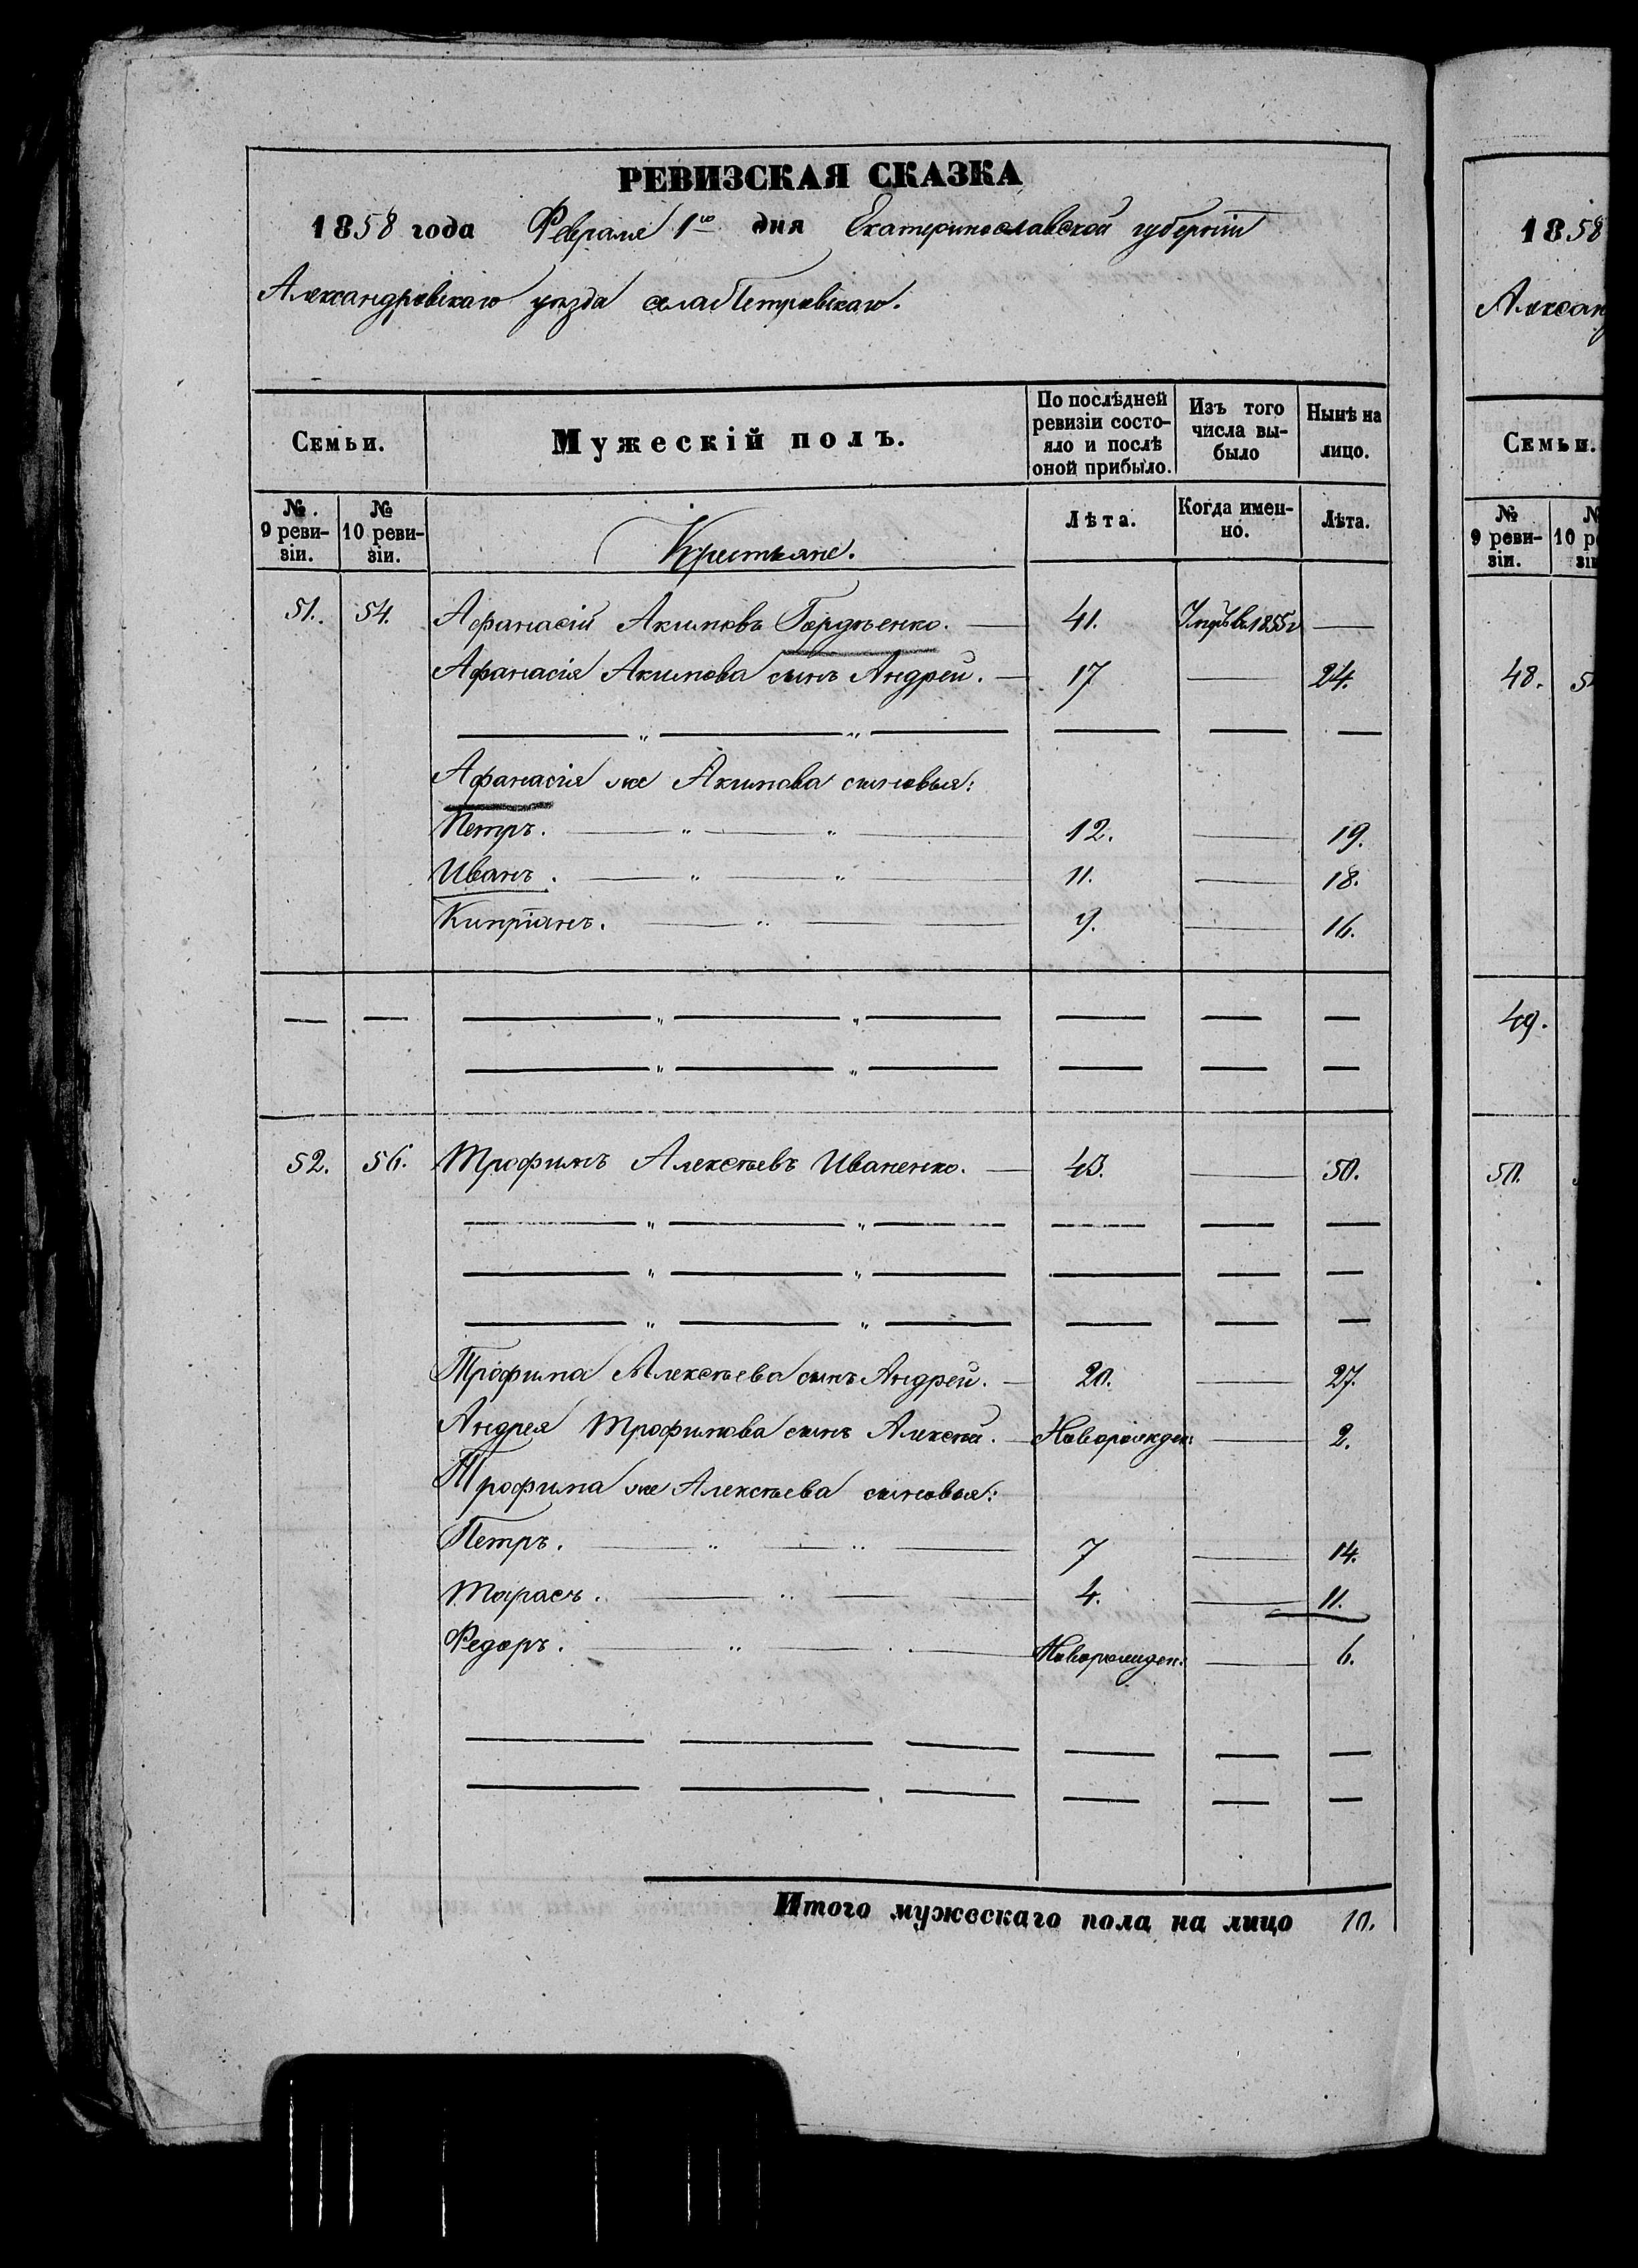 РЕВИЗСКАЯ СКАЗКА
1858 года Февраля 1го дня Екатеринославской губерніи
Александровскаго уѣзда села Петровскаго.
Семьи. Мужескій полъ. По послѣдней ревизіи состояло и послѣ оной прибыло. Изъ того числа выбыло Нынѣ на лицо.
№. 9 ревизіи. № 10 ревизіи. Крестьяне. Лѣта. Когда именно. Лѣта.
51. 54. Афанасій Акимовъ Гордѣенко. — 41. Умръ въ 1855 г —
Афанасія Акимова сынъ Андрей. — 17 — 24.
— „ — „ — — — —
Афанасія же Акимова сыновья:
Петръ. — „ — „ — 12. — 19.
Иванъ. — „ — „ — 11. — 18.
Кипріянъ. — „ — 9. — 16.
— — — „ — „ — — — —
— „ — „ — — — —
52. 56. Трофимъ Алексѣевъ Иваненко. — 43. — 50.
— „ — „ — — — —
— „ — „ — — — —
— „ — „ — — — —
Трофима Алексѣева сынъ Андрей. — 20. — 27.
Андрея Трофимова сынъ Алексѣй. — Новорожден: — 2.
Трофима же Алексѣева сыновья:
Петръ. — „ — „ — 7 — 14.
Тарасъ. — „ — 4. — 11.
Федоръ. — „ — Новорожден: — 6.
— — — — — —
— — — — — —
Итого мужескаго пола на лицо 10.
1858
Александ
Семьи.
№ 9 ревизіи.
48.
49.
50.